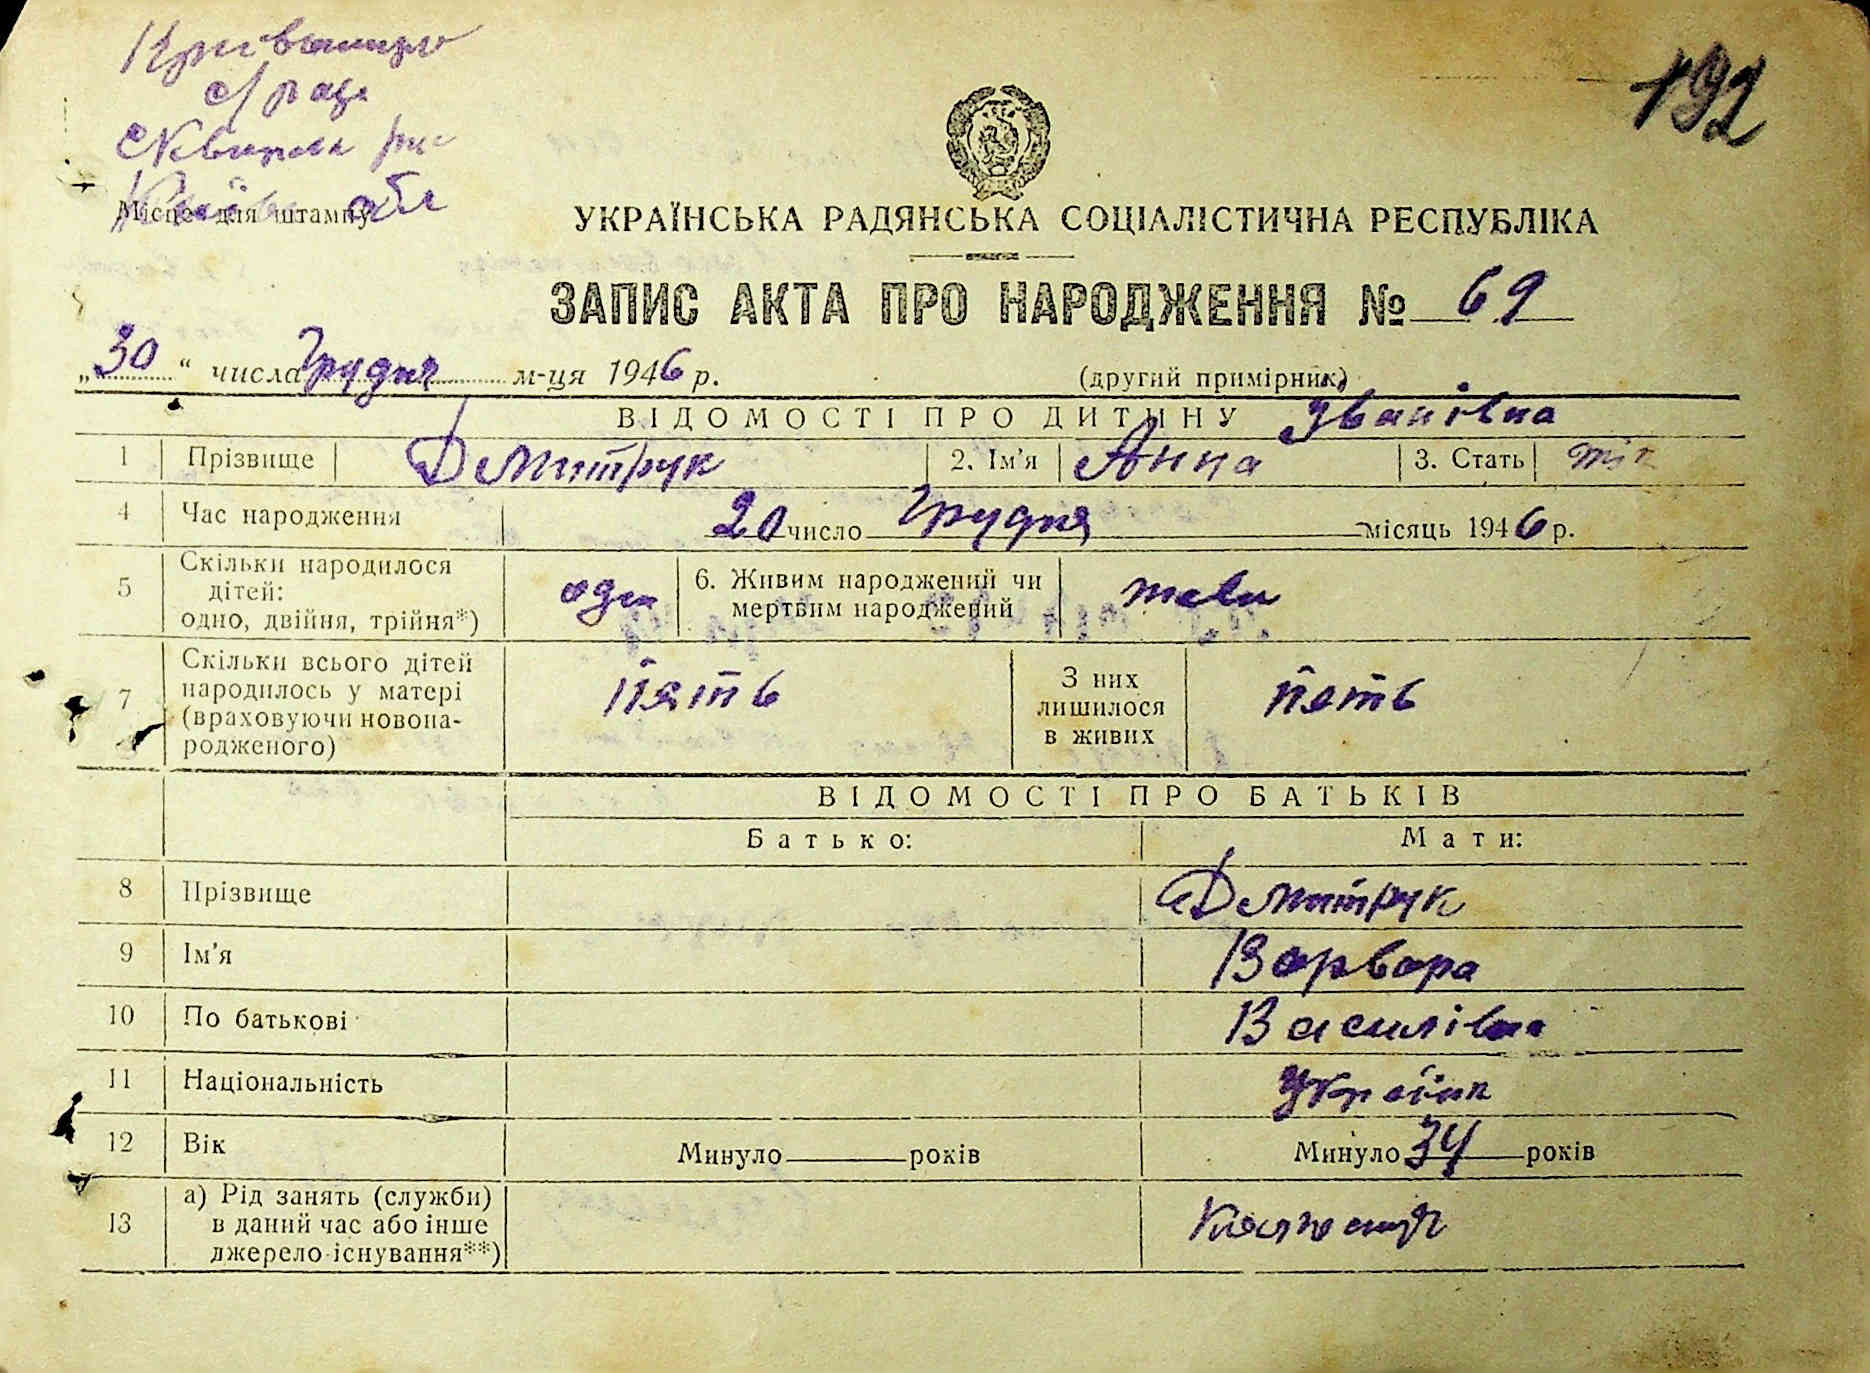 192
с/рада
Сквирськ
Місце для штампу обл
УКРАЇНСЬКА РАДЯНСЬКА СОЦІАЛІСТИЧНА РЕСПУБЛІКА
ЗАПИС АКТА ПРО НАРОДЖЕННЯ № 69
„30“ числа Грудня м-ця 1946 р. (другий примірник)
ВІДОМОСТІ ПРО ДИТИНУ Іванівна
1 Прізвище Дмитрук 2. Ім'я Анна 3. Стать жін
4 Час народження 20 число Грудня місяць 1946 р.
5 Скільки народилося дітей: одно, двійня, трійня*) одн 6. Живим народжений чи мертвим народжений живи
7 Скільки всього дітей народилось у матері (враховуючи новонародженого) пять З них лишилося в живих пять
ВІДОМОСТІ ПРО БАТЬКІВ
Батько: Мати:
8 Прізвище Дмитрук
9 Ім'я Варвара
10 По батькові Василівна
11 Національність Україн
12 Вік Минуло років Минуло 34 років
13 а) Рід занять (служби) в даний час або інше джерело існування**)